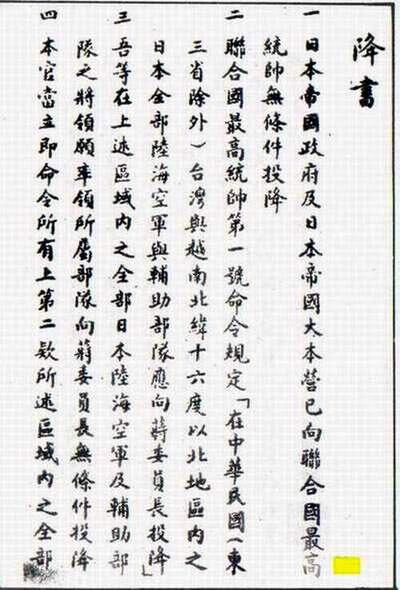 降書
一 日本帝國政府及日本帝國大本營已向聯合國最高
統帥無條件投降
二 聯合國最高統帥第一號命令規定「在中華民國(東
三省除外)台灣與越南北緯十六度以北地區內之
日本全部陸海空軍與輔助部隊應向蔣委員長投降」
三 吾等在上述區域內之全部日本陸海空軍及輔助部
隊之將領願率領所屬部隊向蔣委員長無條件投降
四 本官當立即命令所有上第二款所述區域內之全部